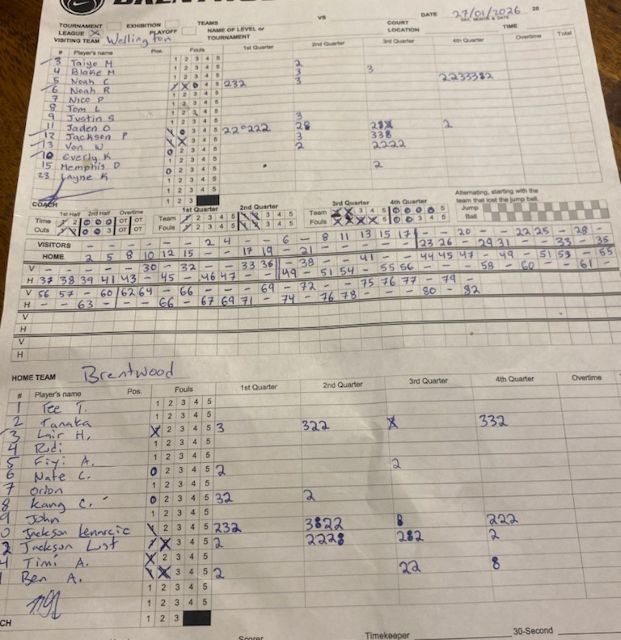 BRENTW
TOURNAMENT EXHIBITION TEAMS VS COURT DATE 27/01/2026 20
LEAGUE X PLAYOFF NAME OF LEVEL or TOURNAMENT LOCATION TIME
VISITING TEAM Wellington
# Player's name Pos. Fouls 1st Quarter 2nd Quarter 3rd Quarter 4th Quarter Overtime Total
3 Taigo M 1 2 3 4 5 2
4 Blake M 1 2 3 4 5 3 3
5 Noah C 3 4 5 232 3 2233332
6 Noah R 1 2 3 4 5
7 Nico P 1 2 3 4 5
8 Tom L 1 2 3 4 5
9 Justin S 1 2 3 4 5 3
11 Jaden O 3 4 5 220222 28 2
12 Jackson P 3 4 5 3 338
13 Von W 2 3 4 5 2 2222
10 Everly K 1 2 3 4 5
15 Memphis D 1 2 3 4 5 2
23 Layne K 1 2 3 4 5
COACH 1 2 3
1st Half 2nd Half Overtime 1st Quarter 2nd Quarter 3rd Quarter 4th Quarter Alternating, starting with the team that lost the jump ball.
Time Outs OT OT Team Fouls Team Fouls Jump Ball
VISITORS - - - - - - 2 4 - - 6 - 8 11 13 15 17 - - 20 - - 22 25 - 28 -
HOME - 2 5 8 10 12 15 - - 17 19 - 21 - - - - - 23 26 - 29 31 - - 33 - 35
V - - - - - 30 - 32 - - - 33 36 - 38 - - 41 - - 44 45 47 - 49 - 51 53 - 55
H 37 38 39 41 43 - 45 - 46 47 - - - 49 - 51 54 - 55 56 - - - 58 - 60 - - 61 -
V 56 57 - 60 62 64 - 66 - - - 69 - 72 - - 75 76 77 - 79 -
H - - 63 - - - 66 - 67 69 71 - 74 - 76 78 - - - 80 - 82
V
H
V
H
HOME TEAM Brentwood
# Player's name Pos. Fouls 1st Quarter 2nd Quarter 3rd Quarter 4th Quarter Overtime
1 Tee T. 1 2 3 4 5
2 Tanaka 1 2 3 4 5
3 Lair H. 2 3 4 5 3 322 332
4 Rudi 1 2 3 4 5
5 Fiyi A. 1 2 3 4 5 2
6 Nate C. 2 3 4 5 2
7 Orton 1 2 3 4 5
8 Kang C. 2 3 4 5 32 2
9 John 1 2 3 4 5
0 Jackson 2 3 4 5 232 3822 8 222
2 Jackson Lust 3 4 5 2 2228 282 2
4 Timi A. 2 3 4 5
1 Ben A. 3 4 5 2 22 8
1 2 3 4 5
CH 1 2 3
Scorer Timekeeper 30-Second